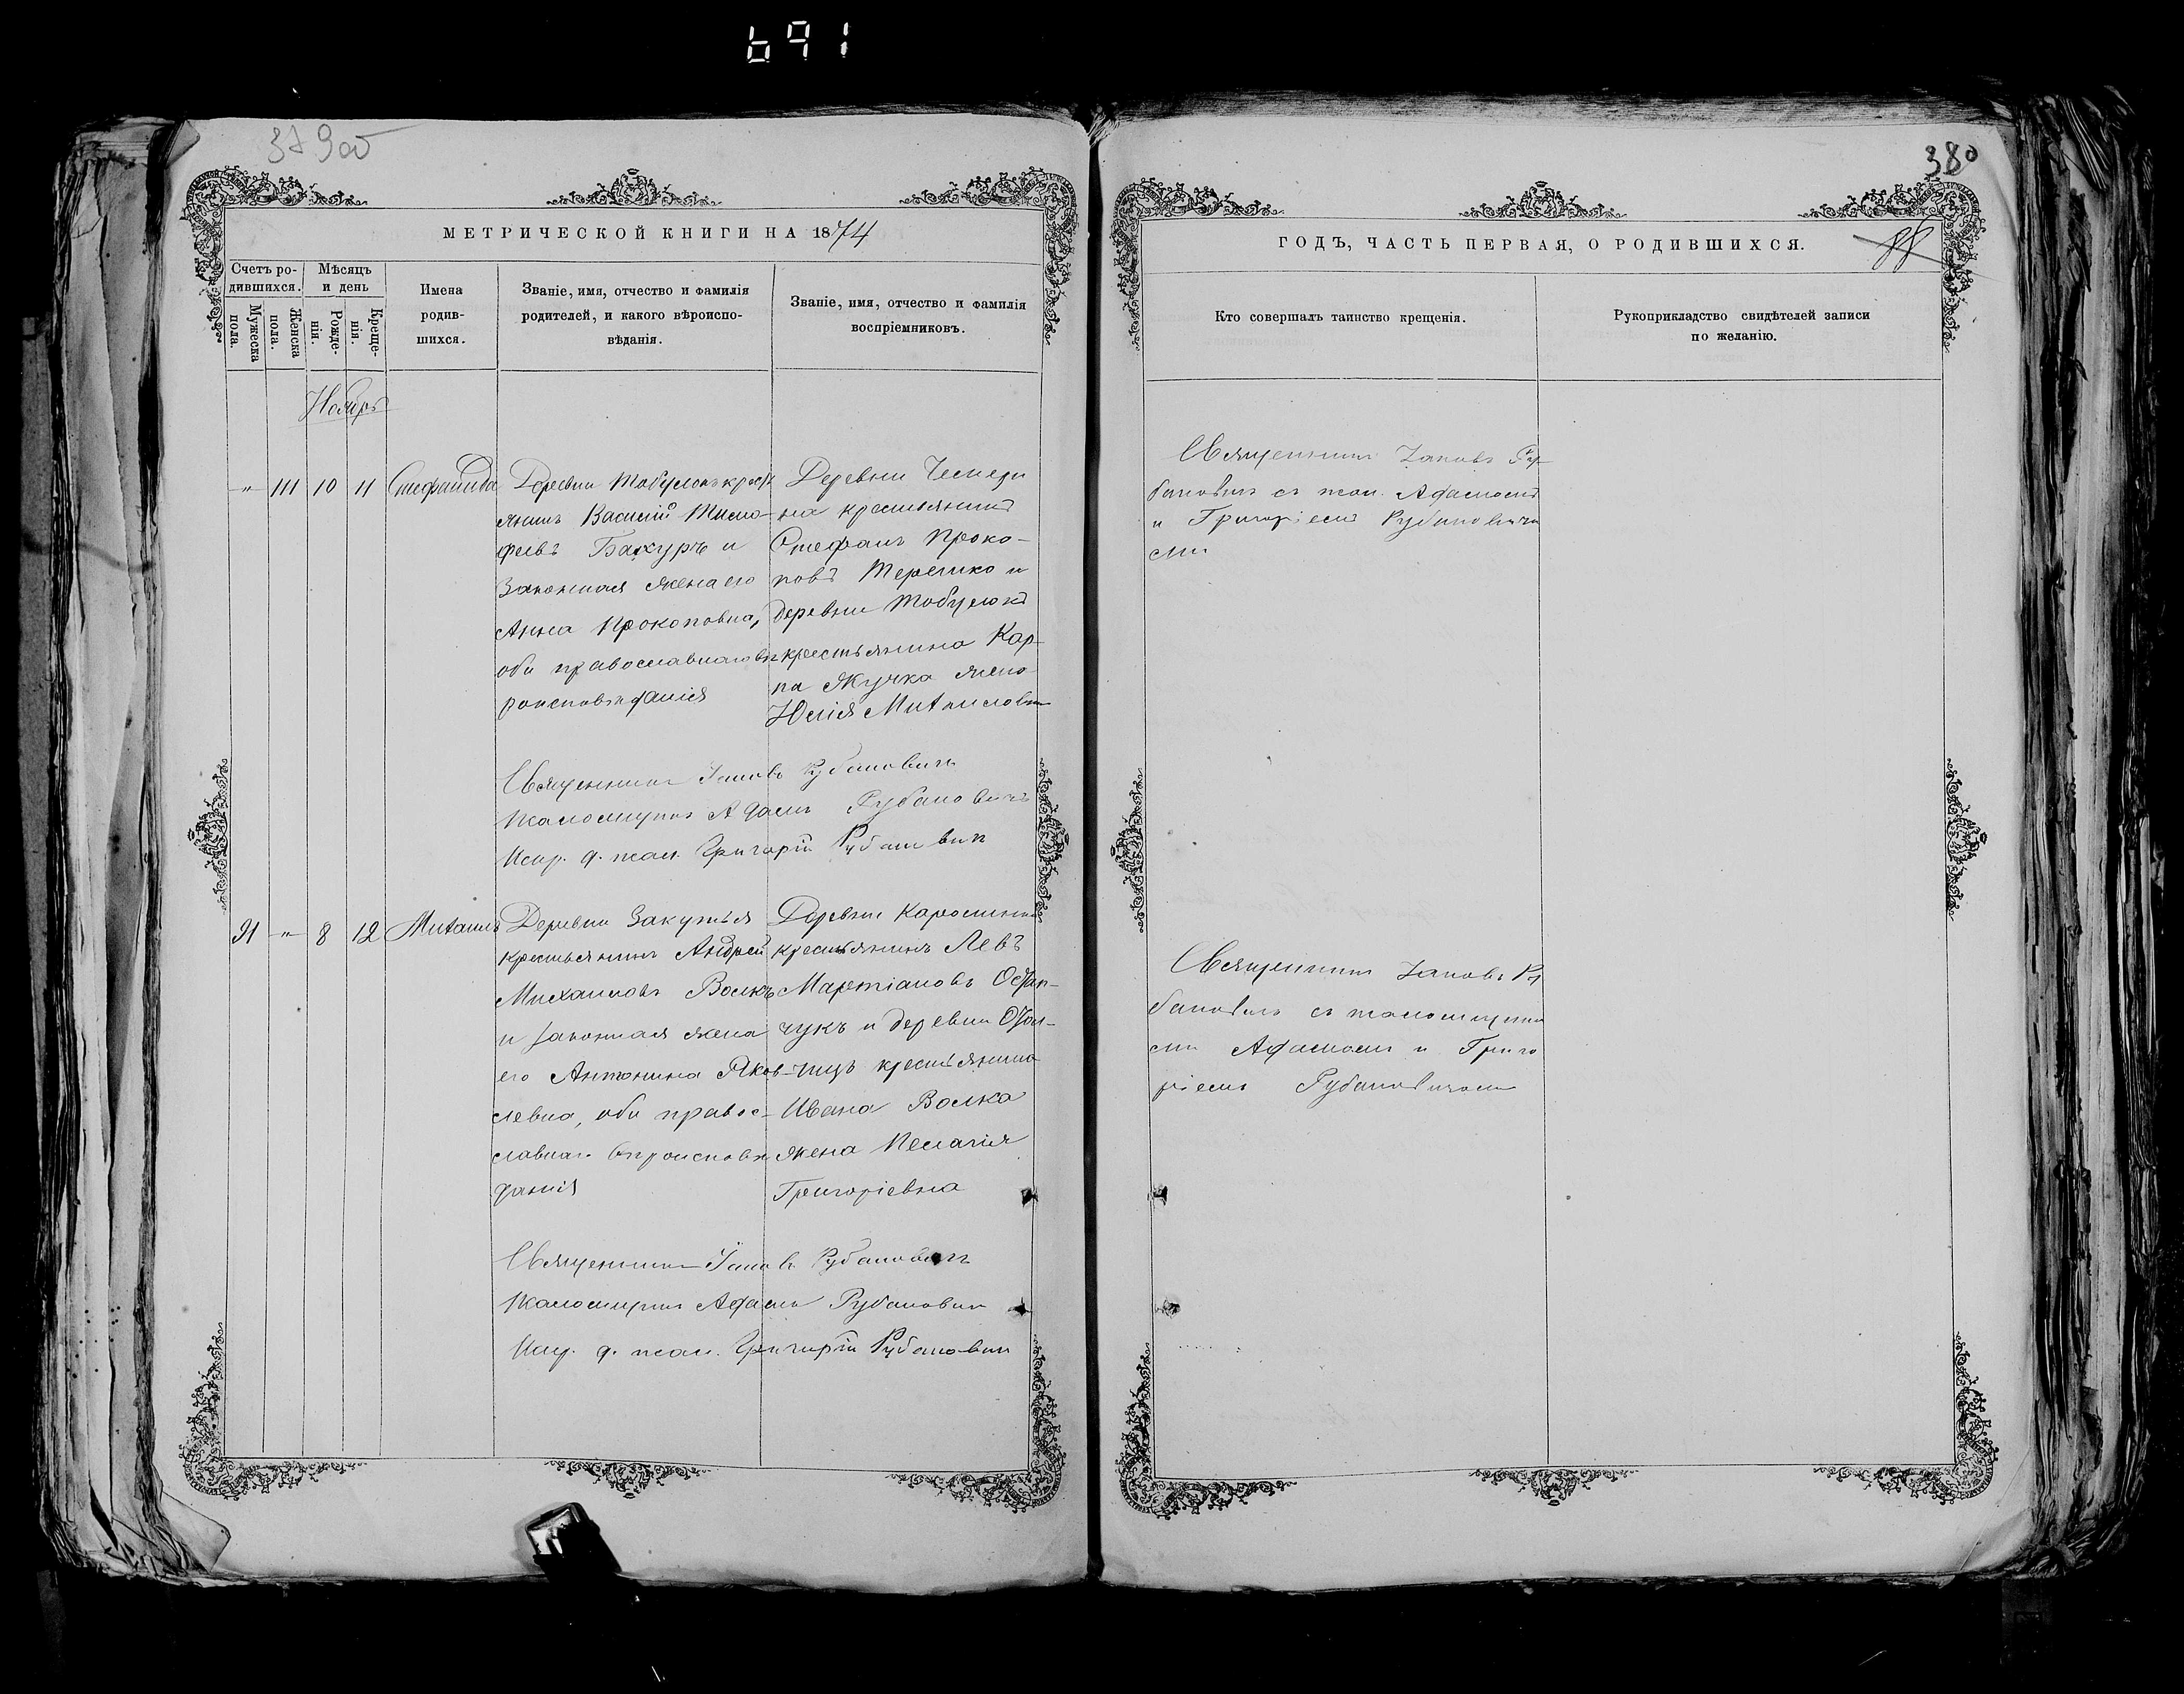 691
37 9об
380
МЕТРИЧЕСКОЙ КНИГИ НА 1874
Счетъ ро-
дившихся.
Мужеска
пола.
Женска
пола.
Мѣсяцъ
и день
Рожде-
нія.
Креще-
нія.
Имена
родив-
шихся.
Званіе, имя, отчество и фамилія
родителей, и какого вѣроиспо-
вѣданія.
Званіе, имя, отчество и фамилія
воспріемниковъ.
Ноябрь
" 111 10 11 Стефанида
Деревни Тобулокъ крест
янинъ Василій Тимо-
феевъ Бахуръ и
законная жена его
Анна Прокоповна,
оби православнаго вѣ
роисповѣданія
Деревни
на крестьянинъ
Стефанъ Проко-
повъ Терешко и
деревни Тобулокъ
крестьянина Кар-
па Жучка жена
Юлія Михаиловна
Священникъ Іаковъ Рубановичъ
Псаломщикъ Адамъ Рубановичъ
Испр. д. псал. Григорій Рубановичъ
91 " 8 12 Михаилъ
Деревни Закутья
крестьянинъ Андрей
Михаиловъ Волкъ
и законная жена
его Антонина Яков-
левна, оби правос-
славнаго вѣроисповѣ
данія
Деревни
крестьянинъ Левъ
Мартіановъ Остап-
чукъ и деревни
крестьянина
Ивана Волка
жена Пелагія
Григоріевна
Священникъ Іаковъ Рубановичъ
Псаломщикъ Адамъ Рубановичъ
Испр. д. псал. Григорій Рубановичъ
ГОДЪ, ЧАСТЬ ПЕРВАЯ, О РОДИВШИХСЯ.
88
Кто совершалъ таинство крещенія.
Рукоприкладство свидѣтелей записи
по желанію.
Священникъ Іаковъ Ру-
бановичъ съ псал. Адамомъ
и Григоріемъ Рубановича
ми
Священникъ Іаковъ Ру
бановичъ съ псаломщика
ми Адамомъ и Григо
ріемъ Рубановичами